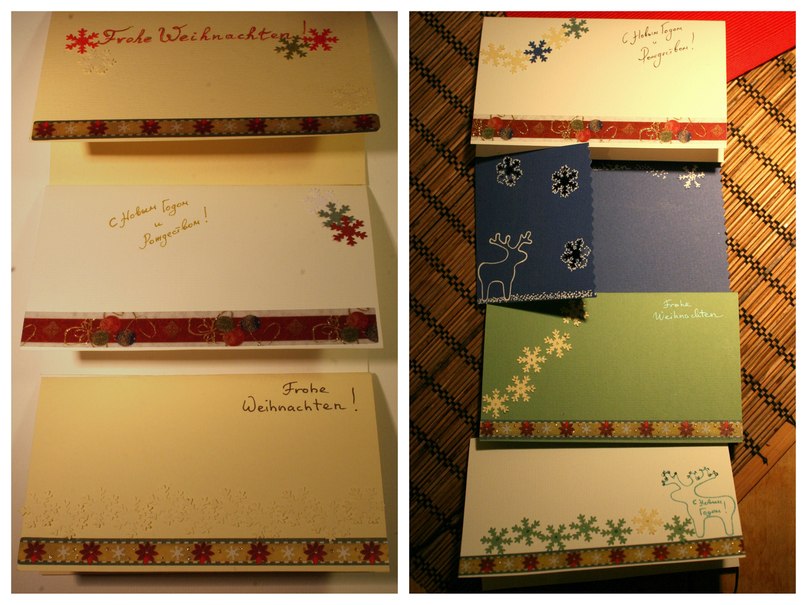 Frohe Weihnachten!
С Новым Годом
и
Рождеством!
Frohe
Weihnachten!
С Новым Годом
и
Рождеством!
Frohe
Weihnachten
С Новым
Годом!